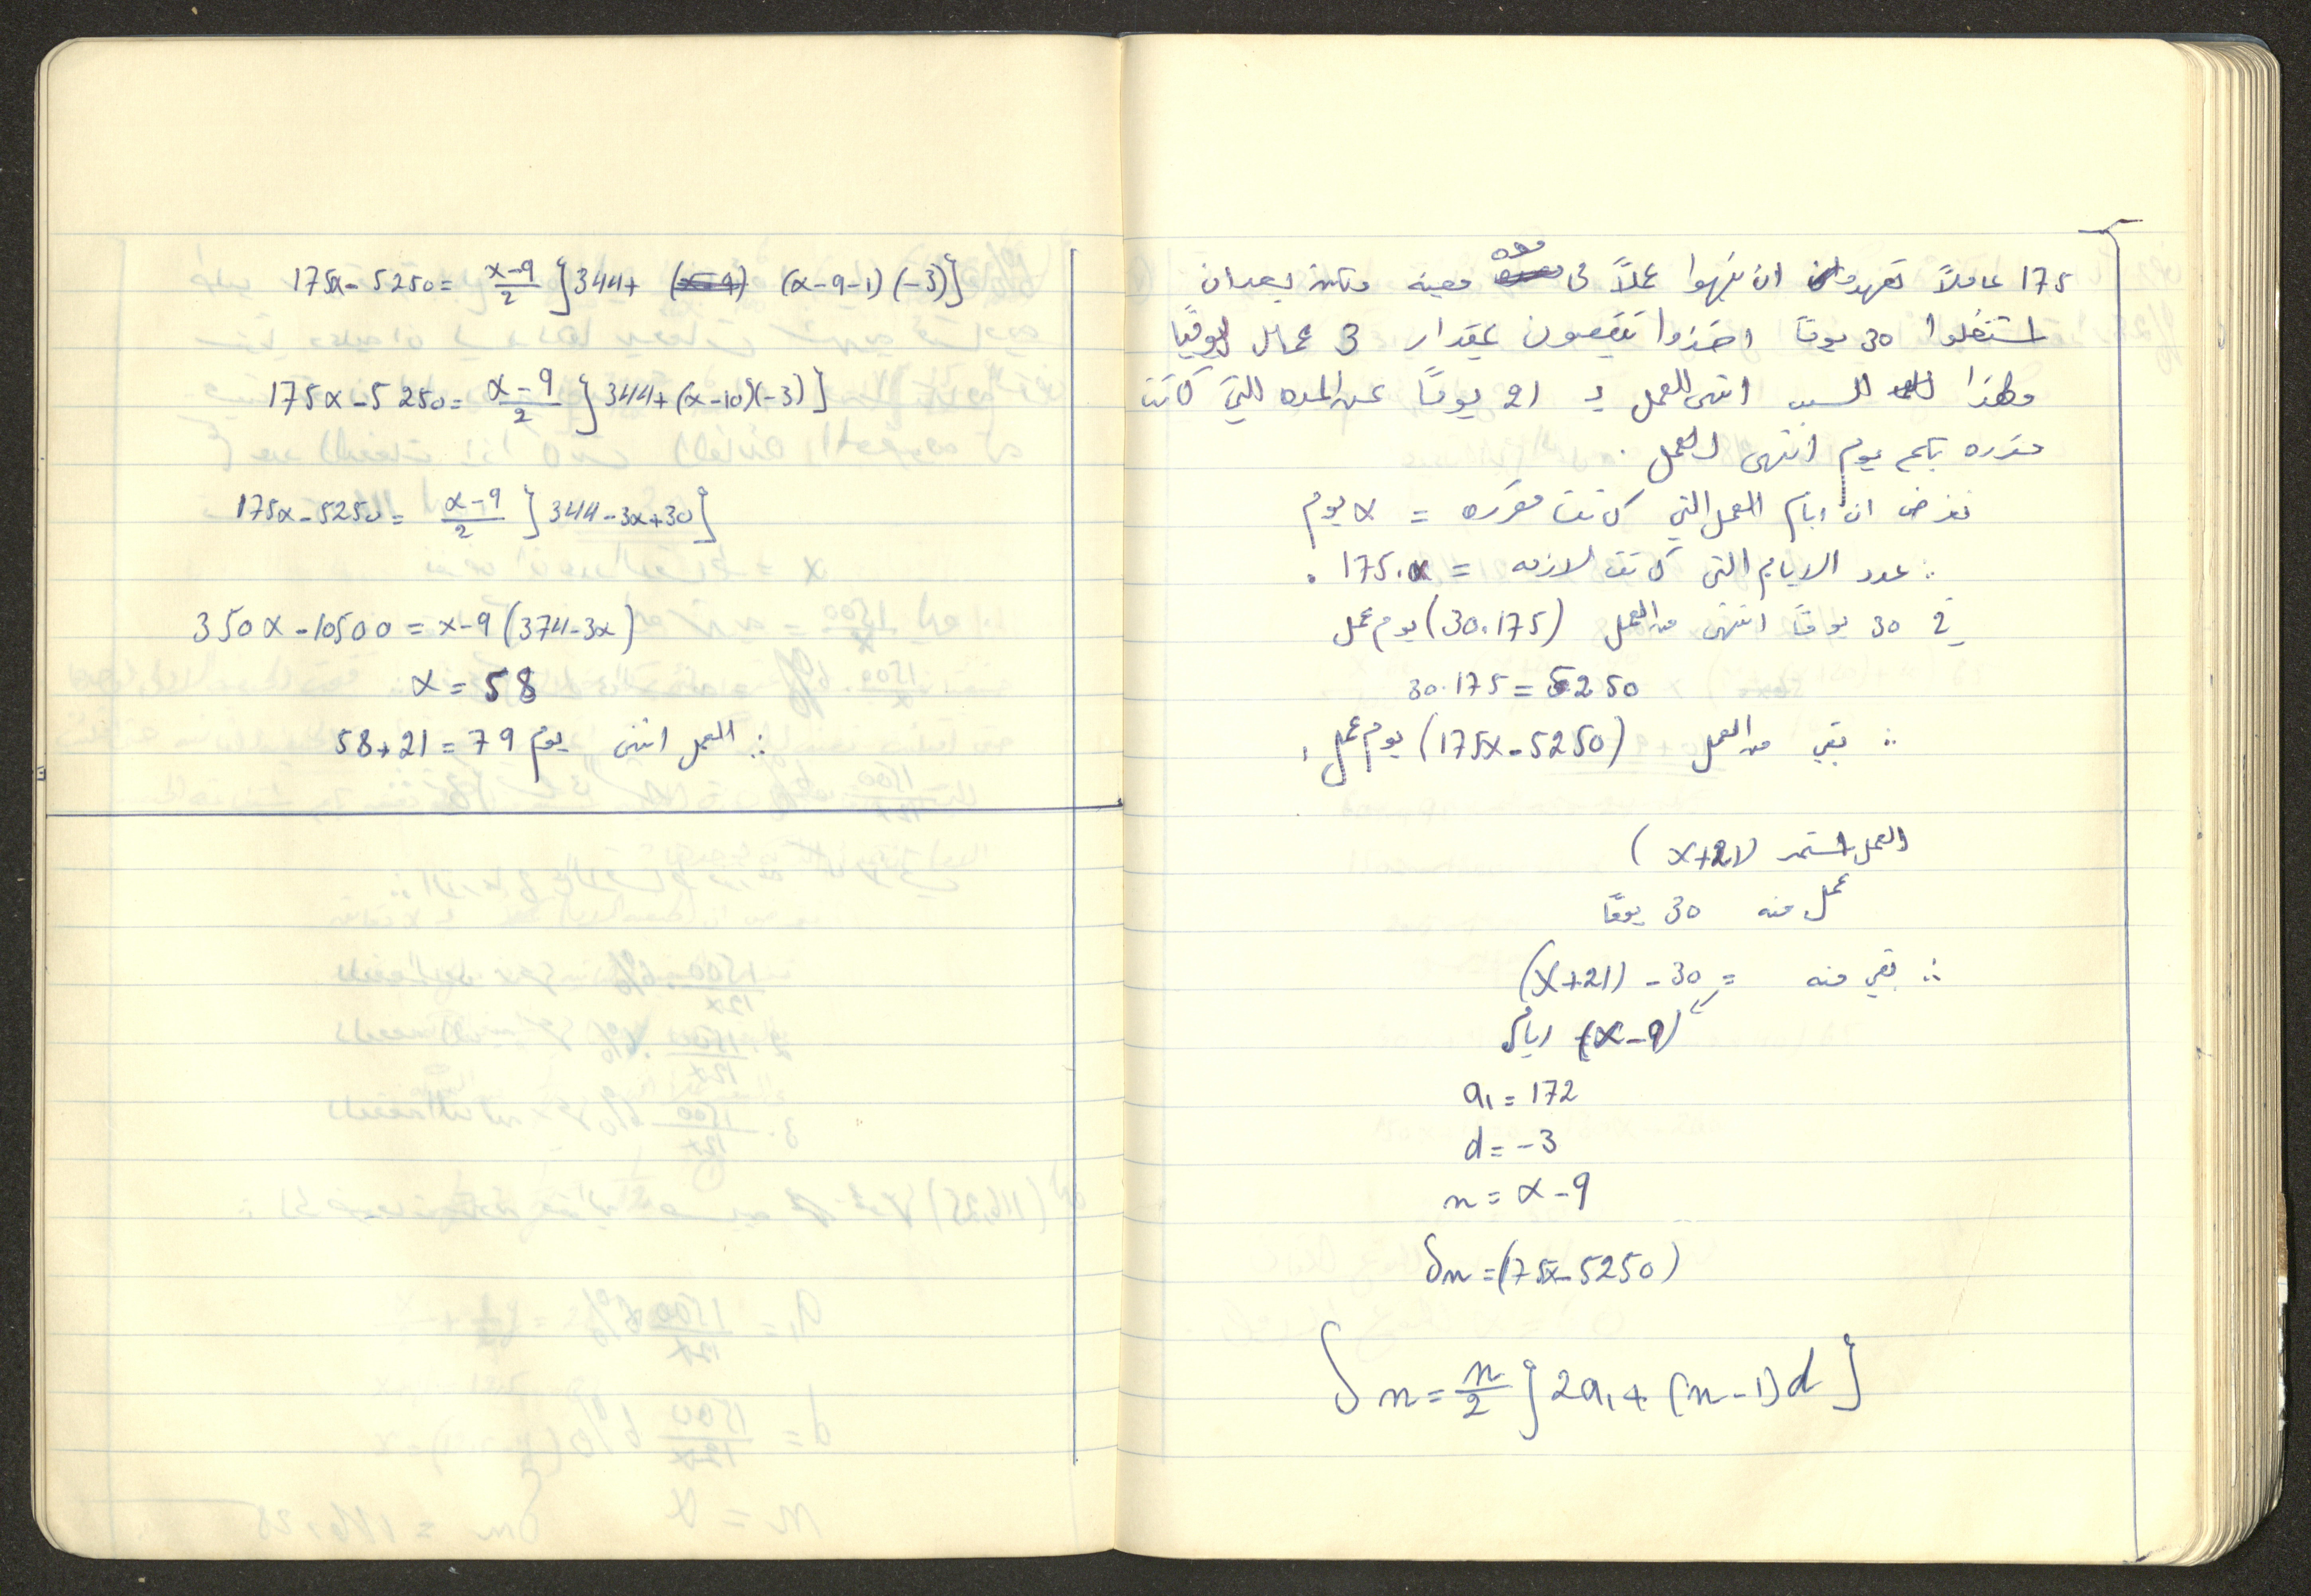 175 عاملاً تعهدوا ان ينهوا عملاً في مده معينه ولكن بعد ان
اشتغلوا 30 يوماً اخذوا ينقصون بمقدار 3 عمال يومياً
ولهذا السبب انتهى العمل بـ 21 يوماً عن المده التي كانت
مقرره بكم يوم انتهى العمل .
نفرض ان ايام العمل التي كانت مقرره = x يوم
∴ عدد الايام التي كانت لازمه = 175.x .
في 30 يوماً انتهى من العمل (30.175) يوم عمل
30.175 = 5250
∴ بقي من العمل (175x-5250) يوم عمل .
العمل استمر (x+21)
عمل منه 30 يوماً
∴ بقي منه = (x+21) - 30
(x-9) ايام
a₁ = 172
d = -3
n = x-9
Sn = (175x-5250)
Sn = n/2 {2a₁ + (n-1)d}
175x - 5250 = x-9/2 {344 + (x-9-1)(-3)}
175x - 5250 = x-9/2 {344 + (x-10)(-3)}
175x - 5250 = x-9/2 {344 - 3x + 30}
350x - 10500 = x-9 (374-3x)
x = 58
∴ العمل انتهى يوم 58+21 = 79